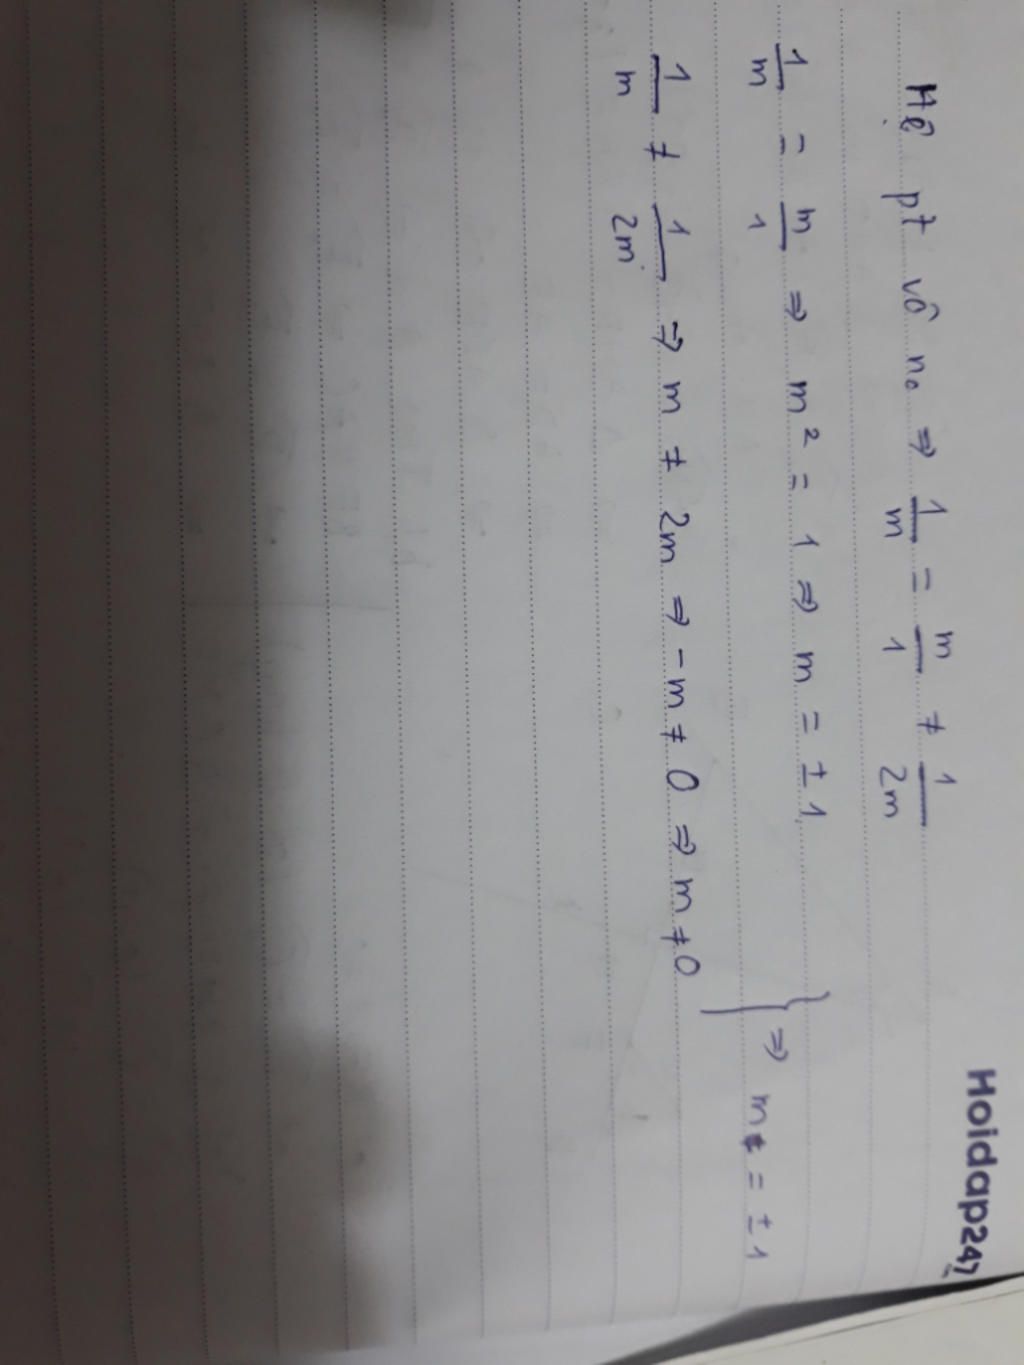 Hoidap247
Hệ pt vô n₀ ⇒ 1/m = m/1 ≠ 1/2m
1/m = m/1 ⇒ m² = 1 ⇒ m = ±1
1/m ≠ 1/2m ⇒ m ≠ 2m ⇒ -m ≠ 0 ⇒ m ≠ 0
} ⇒ m = ±1